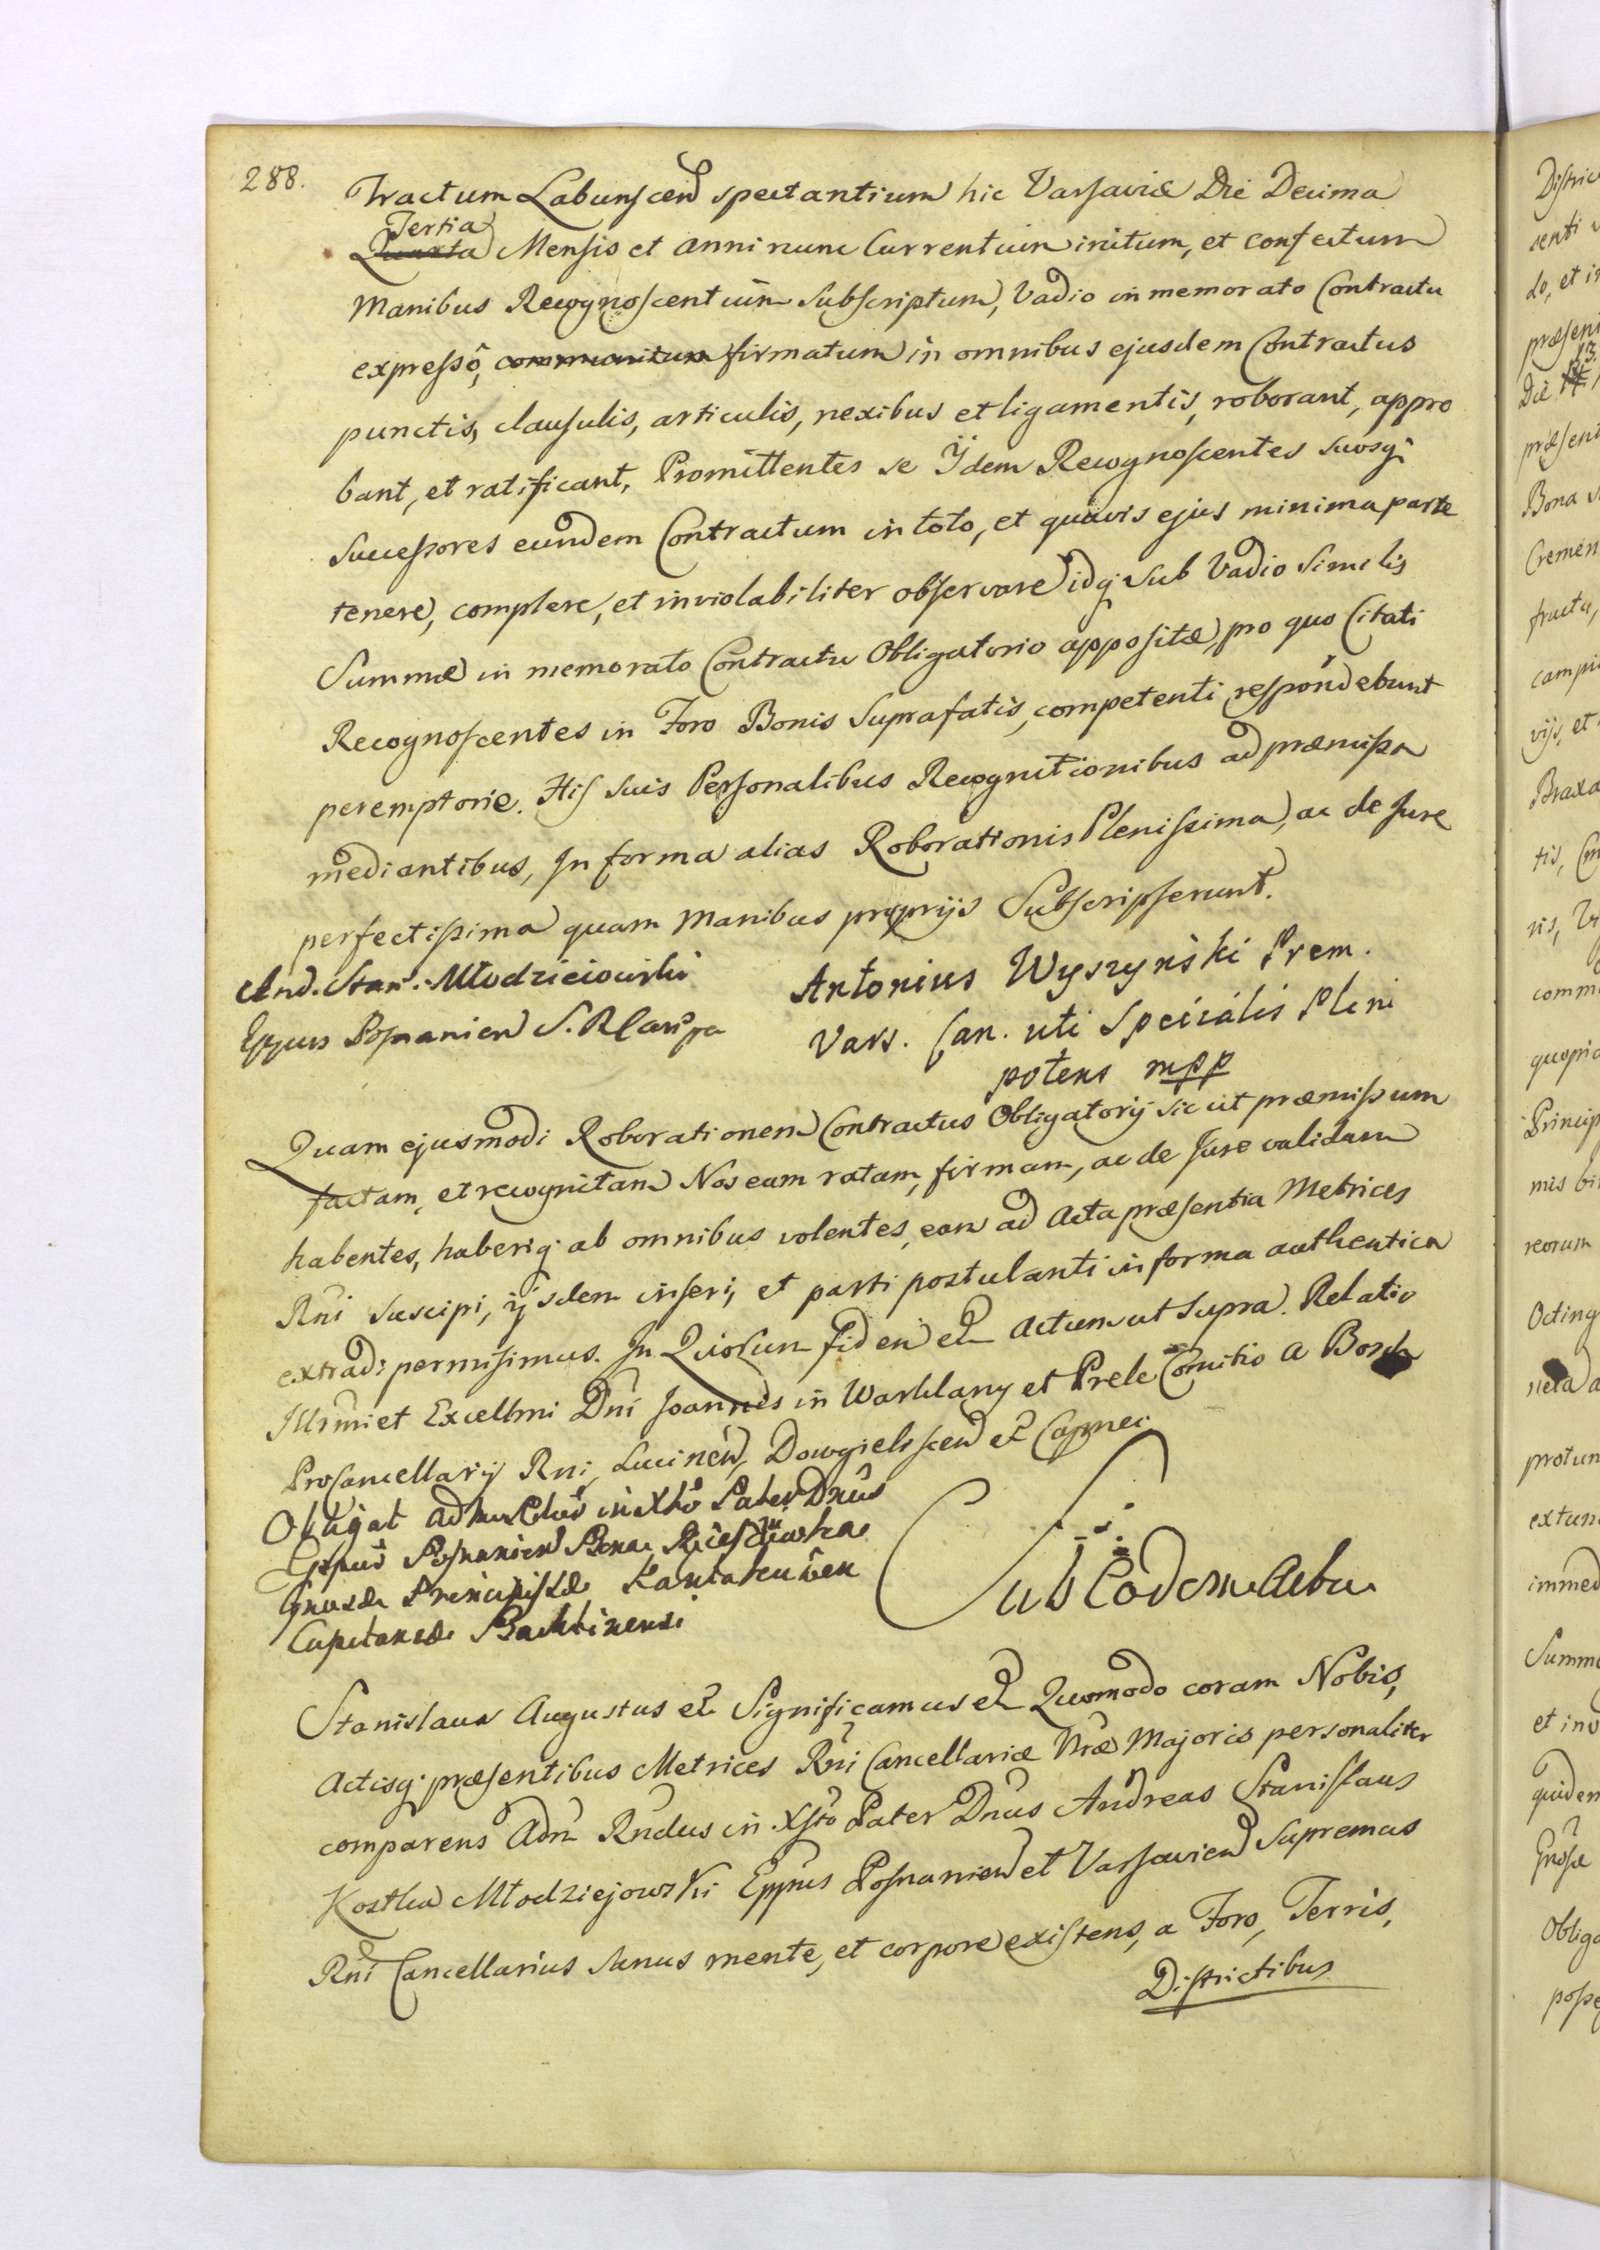 288.
Tractum Labunscen spectantium hic Varsaviæ Die Decima
Tertia
Quarta Mensis et anni nunc Currentium initum, et confectum
Manibus Recognoscentium Subscriptum, Vadio in memorato Contractu
expressô, communitum firmatum in omnibus ejusdem Contractus
punctis, clausulis, articulis, nexibus et ligamentis, roborant, appro
bant, et ratificant, Promittentes se Ijdem Recognoscentes suosq;
Successores eundem Contractum in toto, et quavis ejus minima parte
tenere, complere, et inviolabiliter observare idq; sub Vadio Similis
Summæ in memorato Contractu Obligatorio appositæ, pro quo Citati
Recognoscentes in Foro Bonis Suprafatis, competenti respondebunt
peremptorie. His suis Personalibus Recognitionibus ad præmissa
mediantibus, In forma alias Roborationis Plenissima, ac de Jure
perfectissima quam Manibus proprijs Subscripserunt.
And. Stan. Młodzieiowski
Eppus Posnanien S. R
Antonius Wyszyński Prem.
Vars. Can. uti Specialis Pleni
potens mpp
Quam ejusmodi Roborationem Contractus Obligatorij sic ut præmissum
factam, et recognitam Nos eam ratam, firmam, ac de Jure validam
habentes, haberiq; ab omnibus volentes, eam ad Acta præsentia Metrices
Rni suscipi, ijsdem inseri, et parti postulanti in forma authentica
extradi permisimus. In Quorum fidem etc Actum ut Supra. Relatio
Illrmi et Excellmi Dni Joannis in Warklany et Prele Comitis a Borch
ProCancellarij Rni, Lucinen, Dowgielisscen etc Capnei
Obligat Admrndus in Xto Pater Dnus
Eppus Posnanien Bona
Gnosæ Principissæ
Capitaneæ
Sub Eodem Actu
Stanislaus Augustus etc Significamus etc Quomodo coram Nobis,
Actisq; præsentibus Metrices Rni Cancellariæ Nræ Majoris personaliter
comparens Adm Rndus in Xsto Pater Dnus Andreas Stanislaus
Kostka Młodziejowski Eppus Posnanien et Varsavien Supremus
Rni Cancellarius sanus mente, et corpore existens, a Foro, Terris,
Districtibus
Distric
senti
do, et in
præsent
13.
Die
præsent
Bona
Cremen
fructu,
campi
vijs, et
Braxa
tis,
comm
quopia
Princip
mis
reorum
Octing
protun
extun
immed
Summ
et
quidem
Gnosæ
Obliga
posse